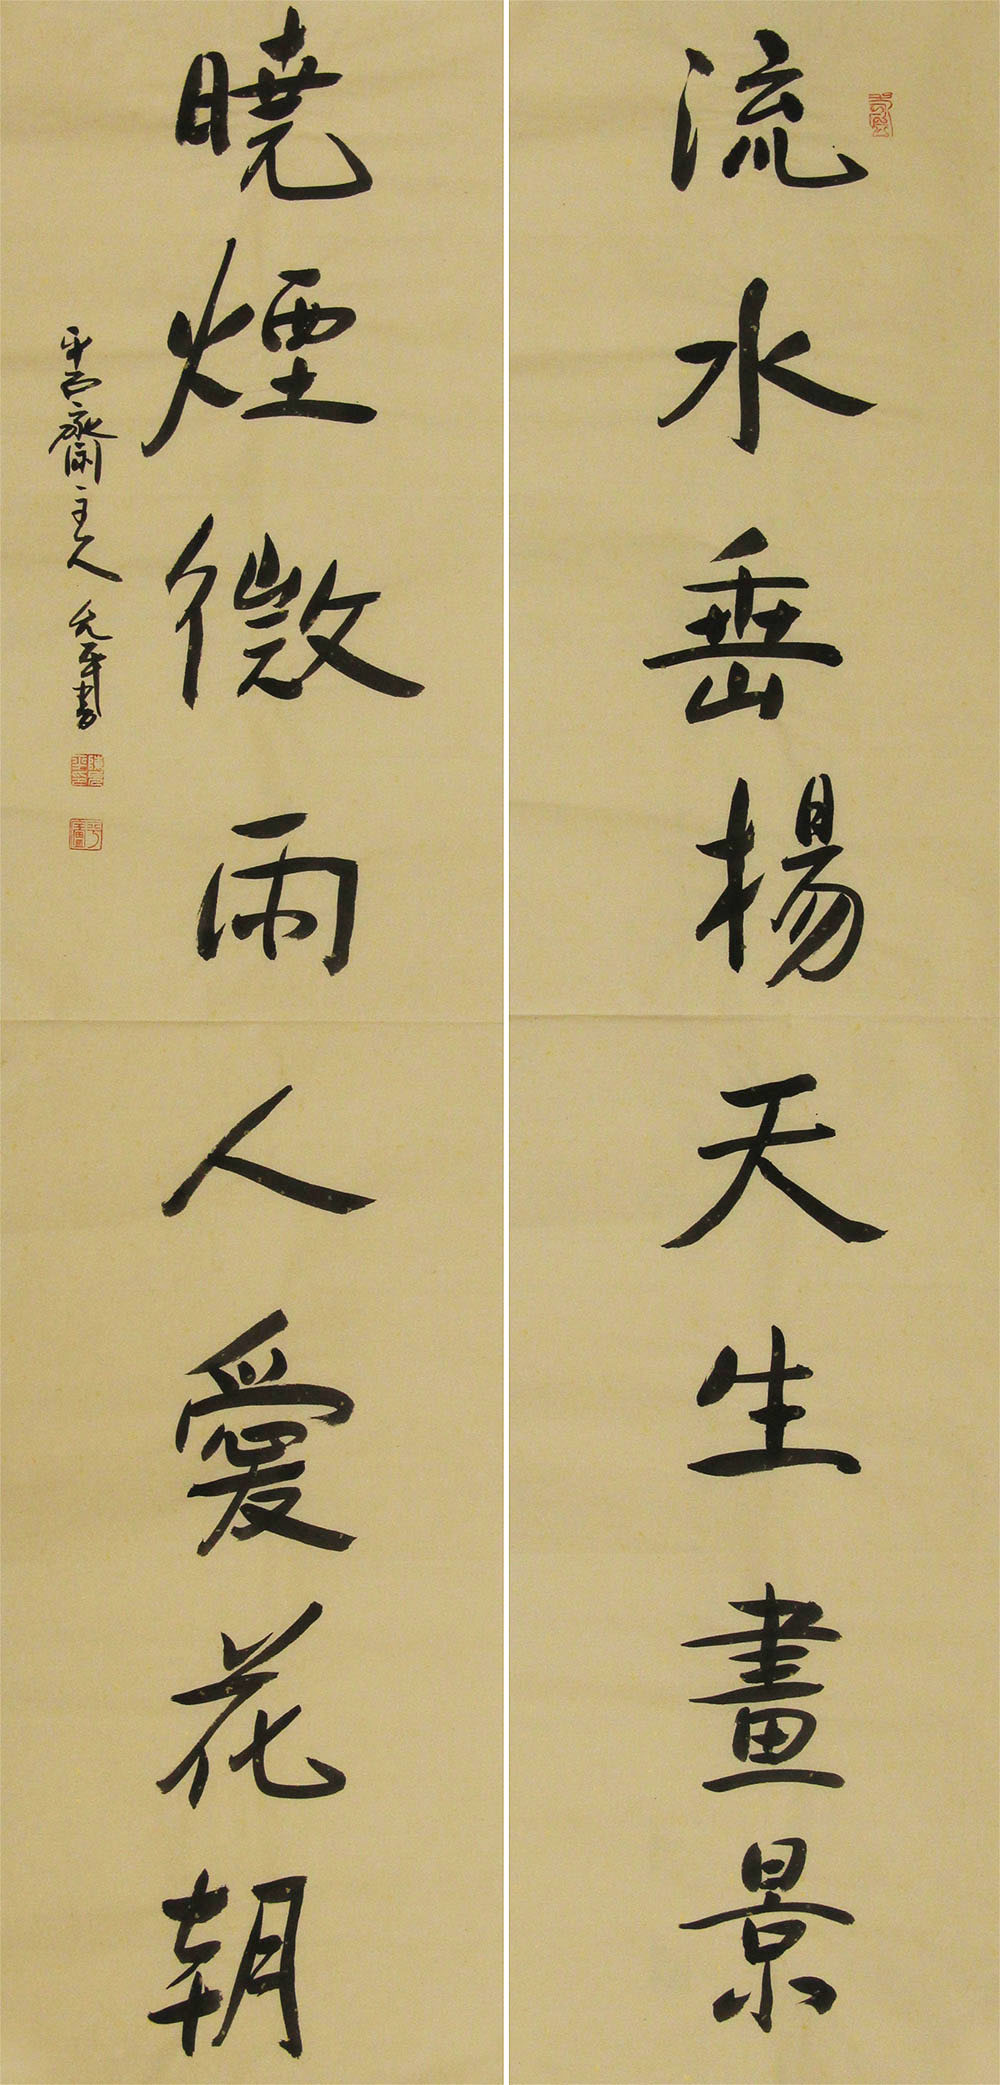 流水垂楊天生畫景
曉煙微雨人愛花朝
主人允平書